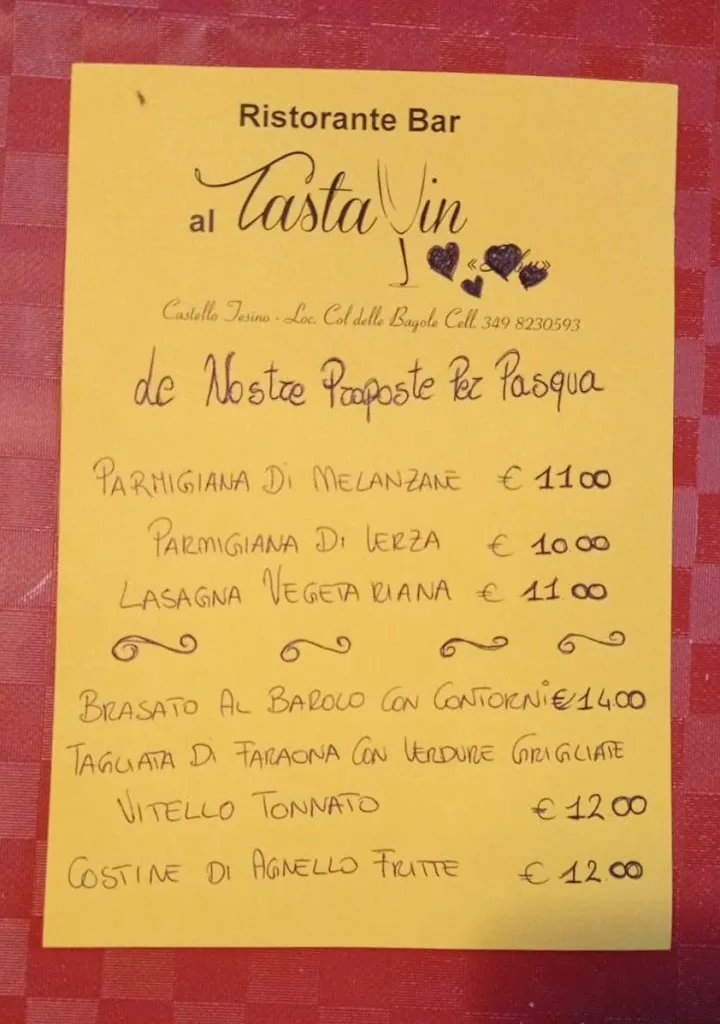 Ristorante Bar
al TastaVin
Castello Tesino - Loc. Col delle Bagole Cell. 349 8230593
le Nostre Proposte Per Pasqua
PARMIGIANA DI MELANZANE € 11.00
PARMIGIANA DI VERZA € 10.00
LASAGNA VEGETARIANA € 11.00
BRASATO AL BAROLO CON CONTORNI € 14.00
TAGLIATA DI FARAONA CON VERDURE GRIGLIATE
VITELLO TONNATO € 12.00
COSTINE DI AGNELLO FRITTE € 12.00